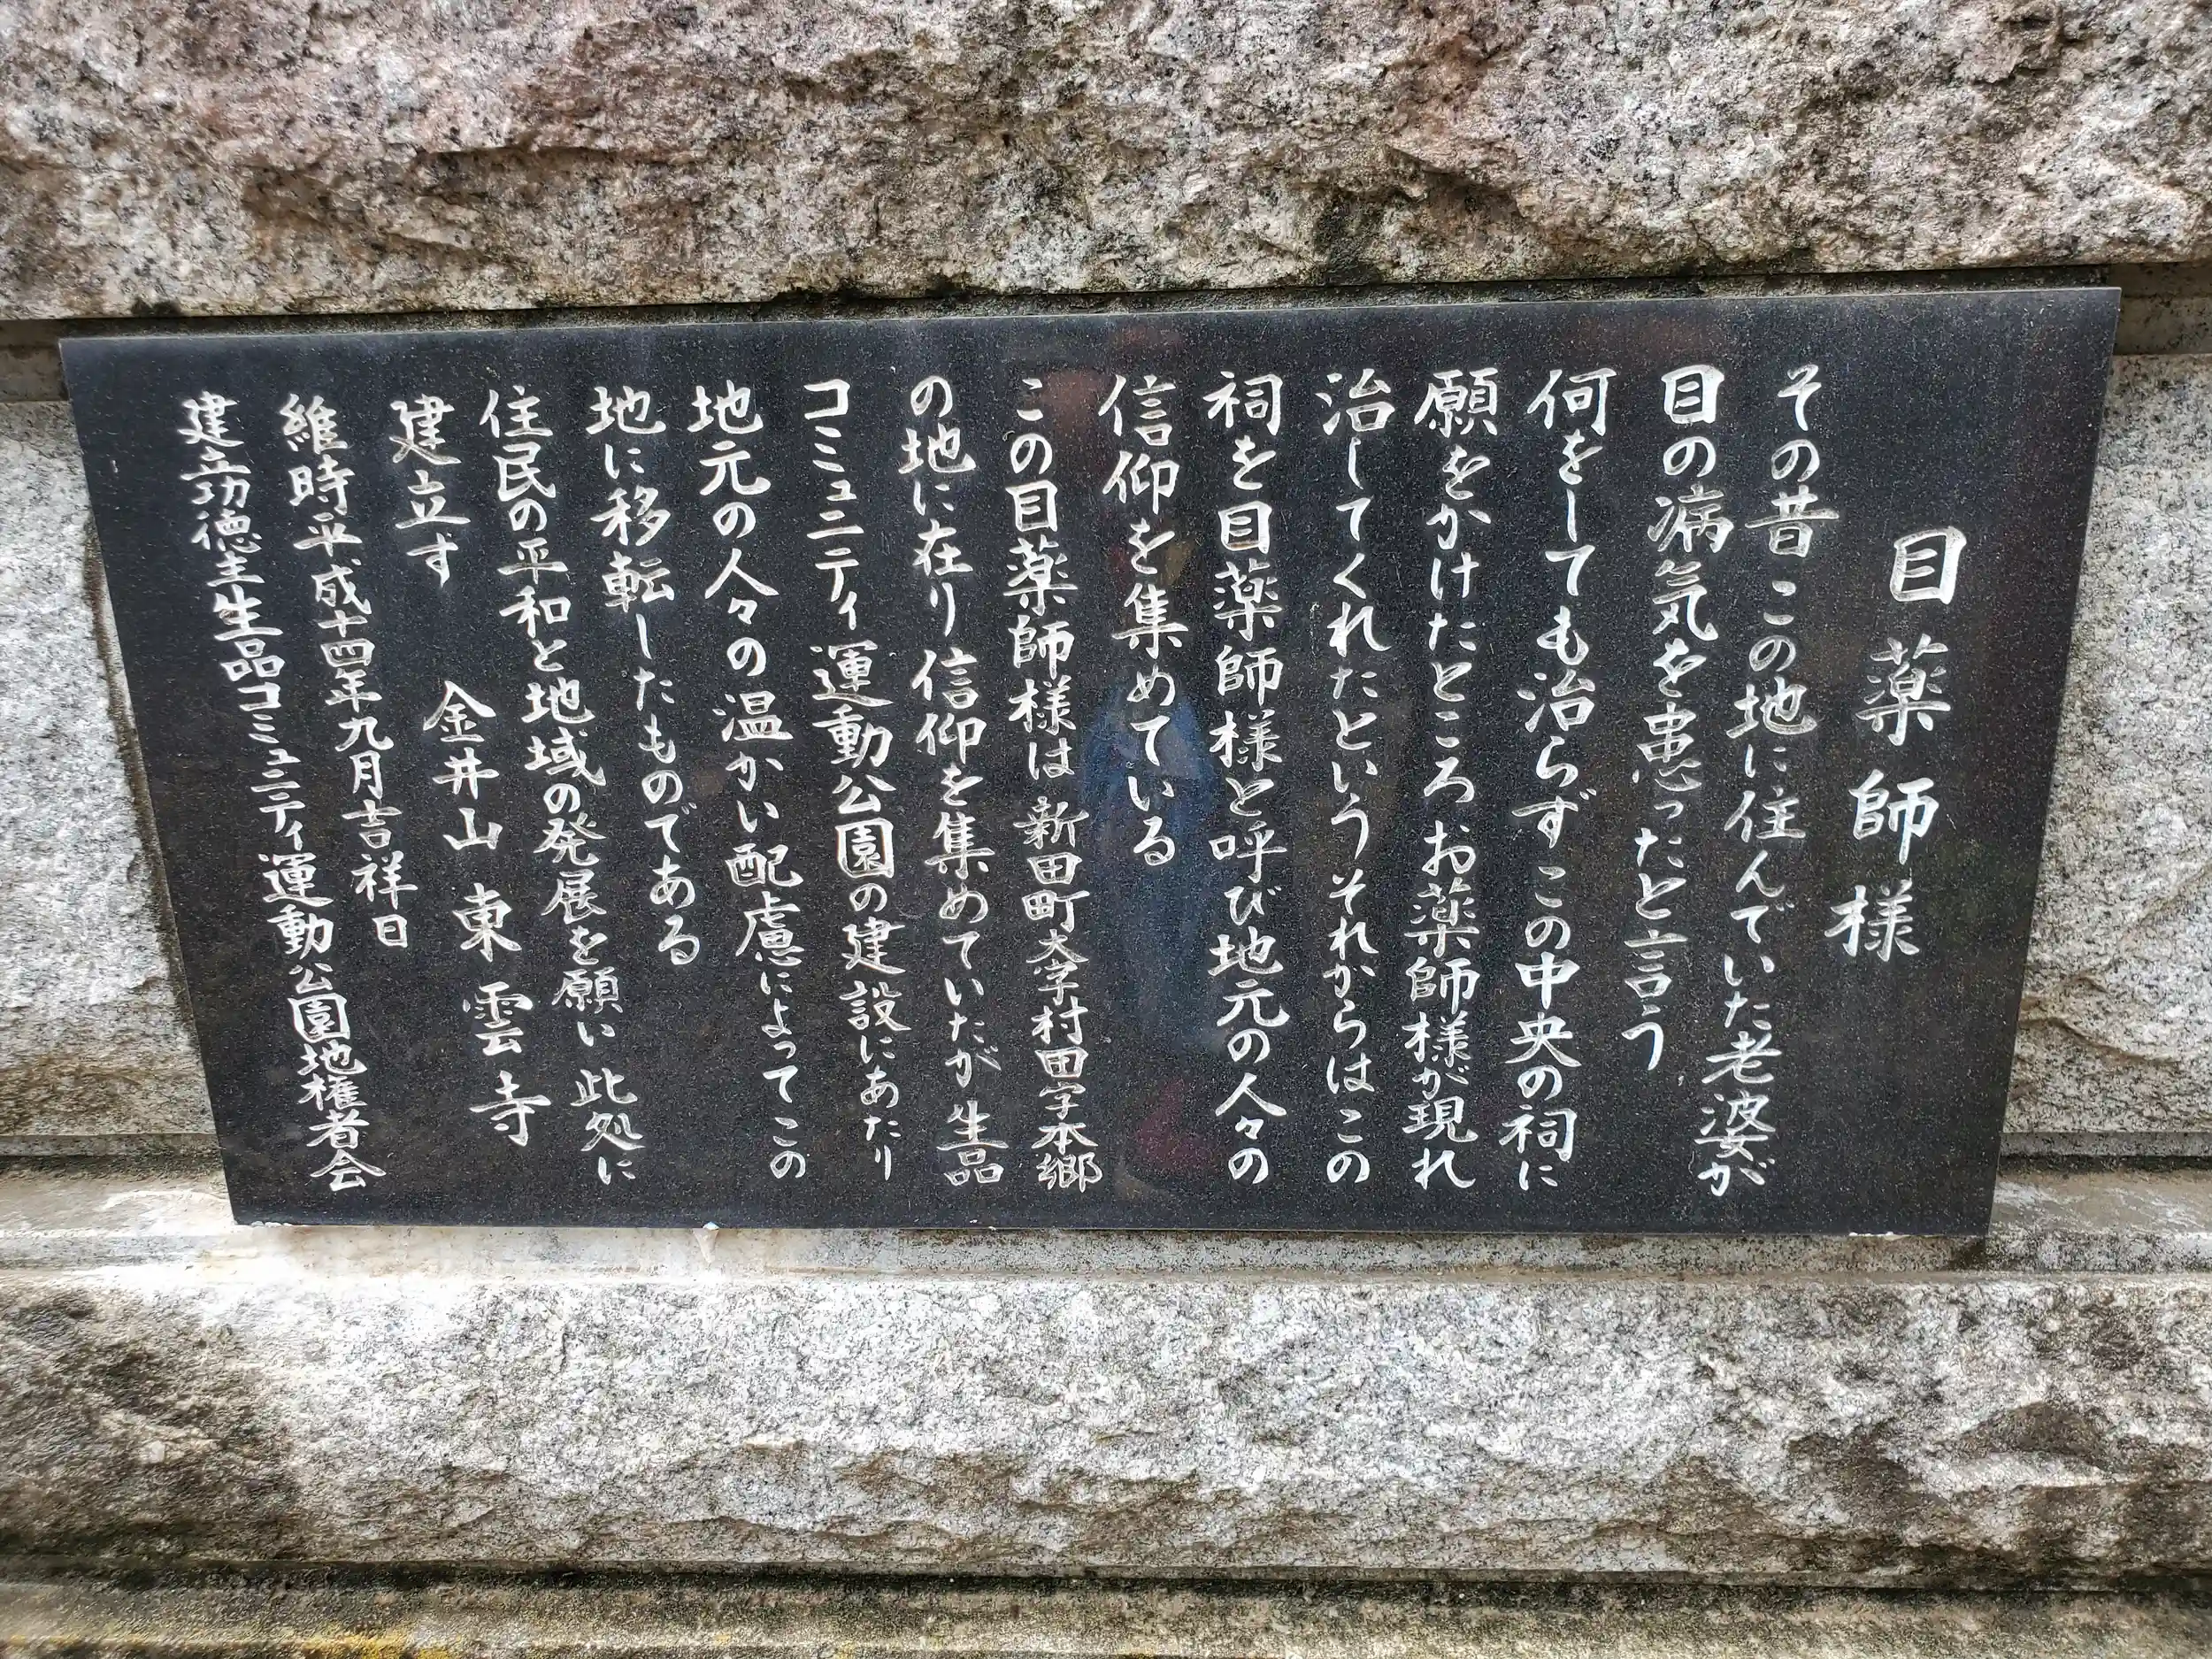 目薬師様
その昔 この地に住んでいた老婆が
目の病気を患ったと言う
何をしても治らずこの中央の祠に
願をかけたところ お薬師様が現れ
治してくれたという それからはこの
祠を目薬師様と呼び地元の人々の
信仰を集めている
この目薬師様は 新田町大字村田字本郷
の地に在り信仰を集めていたが 生品
コミュニティ運動公園の建設にあたり
地元の人々の温かい配慮によってこの
地に移転したものである
住民の平和と地域の発展を願い 此処に
建立す 金井山 東雲寺
維時平成十四年九月吉祥日
建立功徳主生品コミュニティ運動公園地権者会